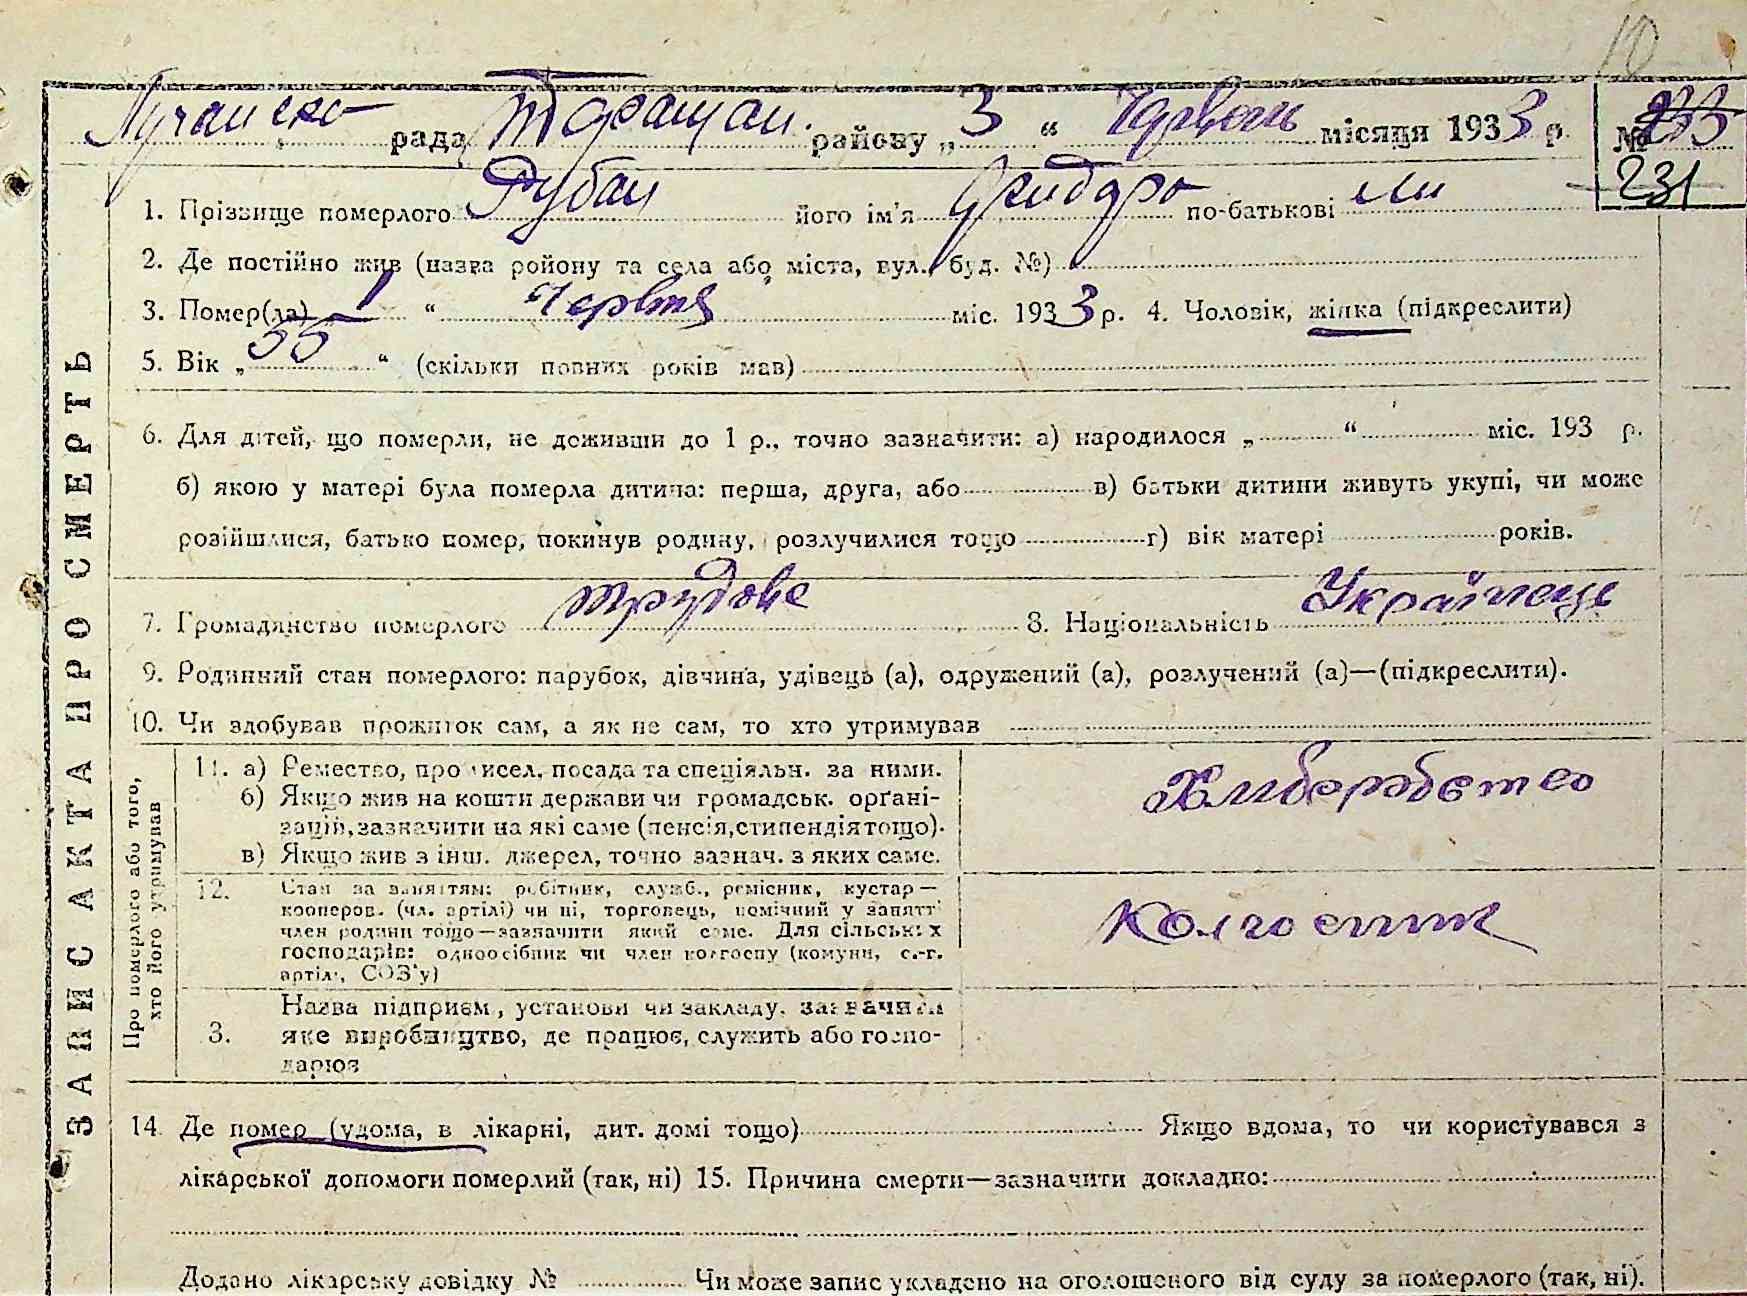 10
Лучанско рада Таращан. району „ 3 “ Червень місяця 1933 р. № 233
231
1. Прізвище померлого Рубан його ім'я по-батькові
2. Де постійно жив (назва ройону та села або міста, вул., буд. №)
3. Помер(ла) 1 “ Червня міс. 1933 р. 4. Чоловік, жінка (підкреслити)
5. Вік „ 55 “ (скільки повних років мав)
6. Для дітей, що померли, не доживши до 1 р., точно зазначити: а) народилося „ “ міс. 193 р.
б) якою у матері була померла дитина: перша, друга, або в) батьки дитини живуть укупі, чи може
розійшлися, батько помер, покинув родину, розлучилися тощо г) вік матері років.
7. Громадянство померлого трудове 8. Національність Українець
9. Родинний стан померлого: парубок, дівчина, удівець (а), одружений (а), розлучений (а)—(підкреслити).
10. Чи здобував прожиток сам, а як не сам, то хто утримував
ЗАПИС АКТА ПРО СМЕРТЬ
Про померлого або того,
хто його утримував
11. а) Ремество, промисел, посада та спеціяльн. за ними.
б) Якщо жив на кошти держави чи громадськ. орґані-
зацій, зазначити на які саме (пенсія, стипендія тощо).
в) Якщо жив з інш. джерел, точно зазнач. з яких саме.
Хлиборобство
12. Стан за заняттям: робітник, служб., ремісник, кустар—
кооперов. (чл. артілі) чи ні, торговець, помічний у занятті
член родини тощо—зазначити який саме. Для сільських
господарів: одноосібник чи член колгоспу (комуни, с.-г.
артілі, СОЗ'у)
Колгоспник
3. Назва підприєм, установи чи закладу, зазначити
яке виробництво, де працює, служить або госпо-
дарює
14. Де помер (удома, в лікарні, дит. домі тощо) Якщо вдома, то чи користувався з
лікарської допомоги померлий (так, ні) 15. Причина смерти—зазначити докладно:
Додано лікарську довідку № Чи може запис укладено на оголошеного від суду за померлого (так, ні).